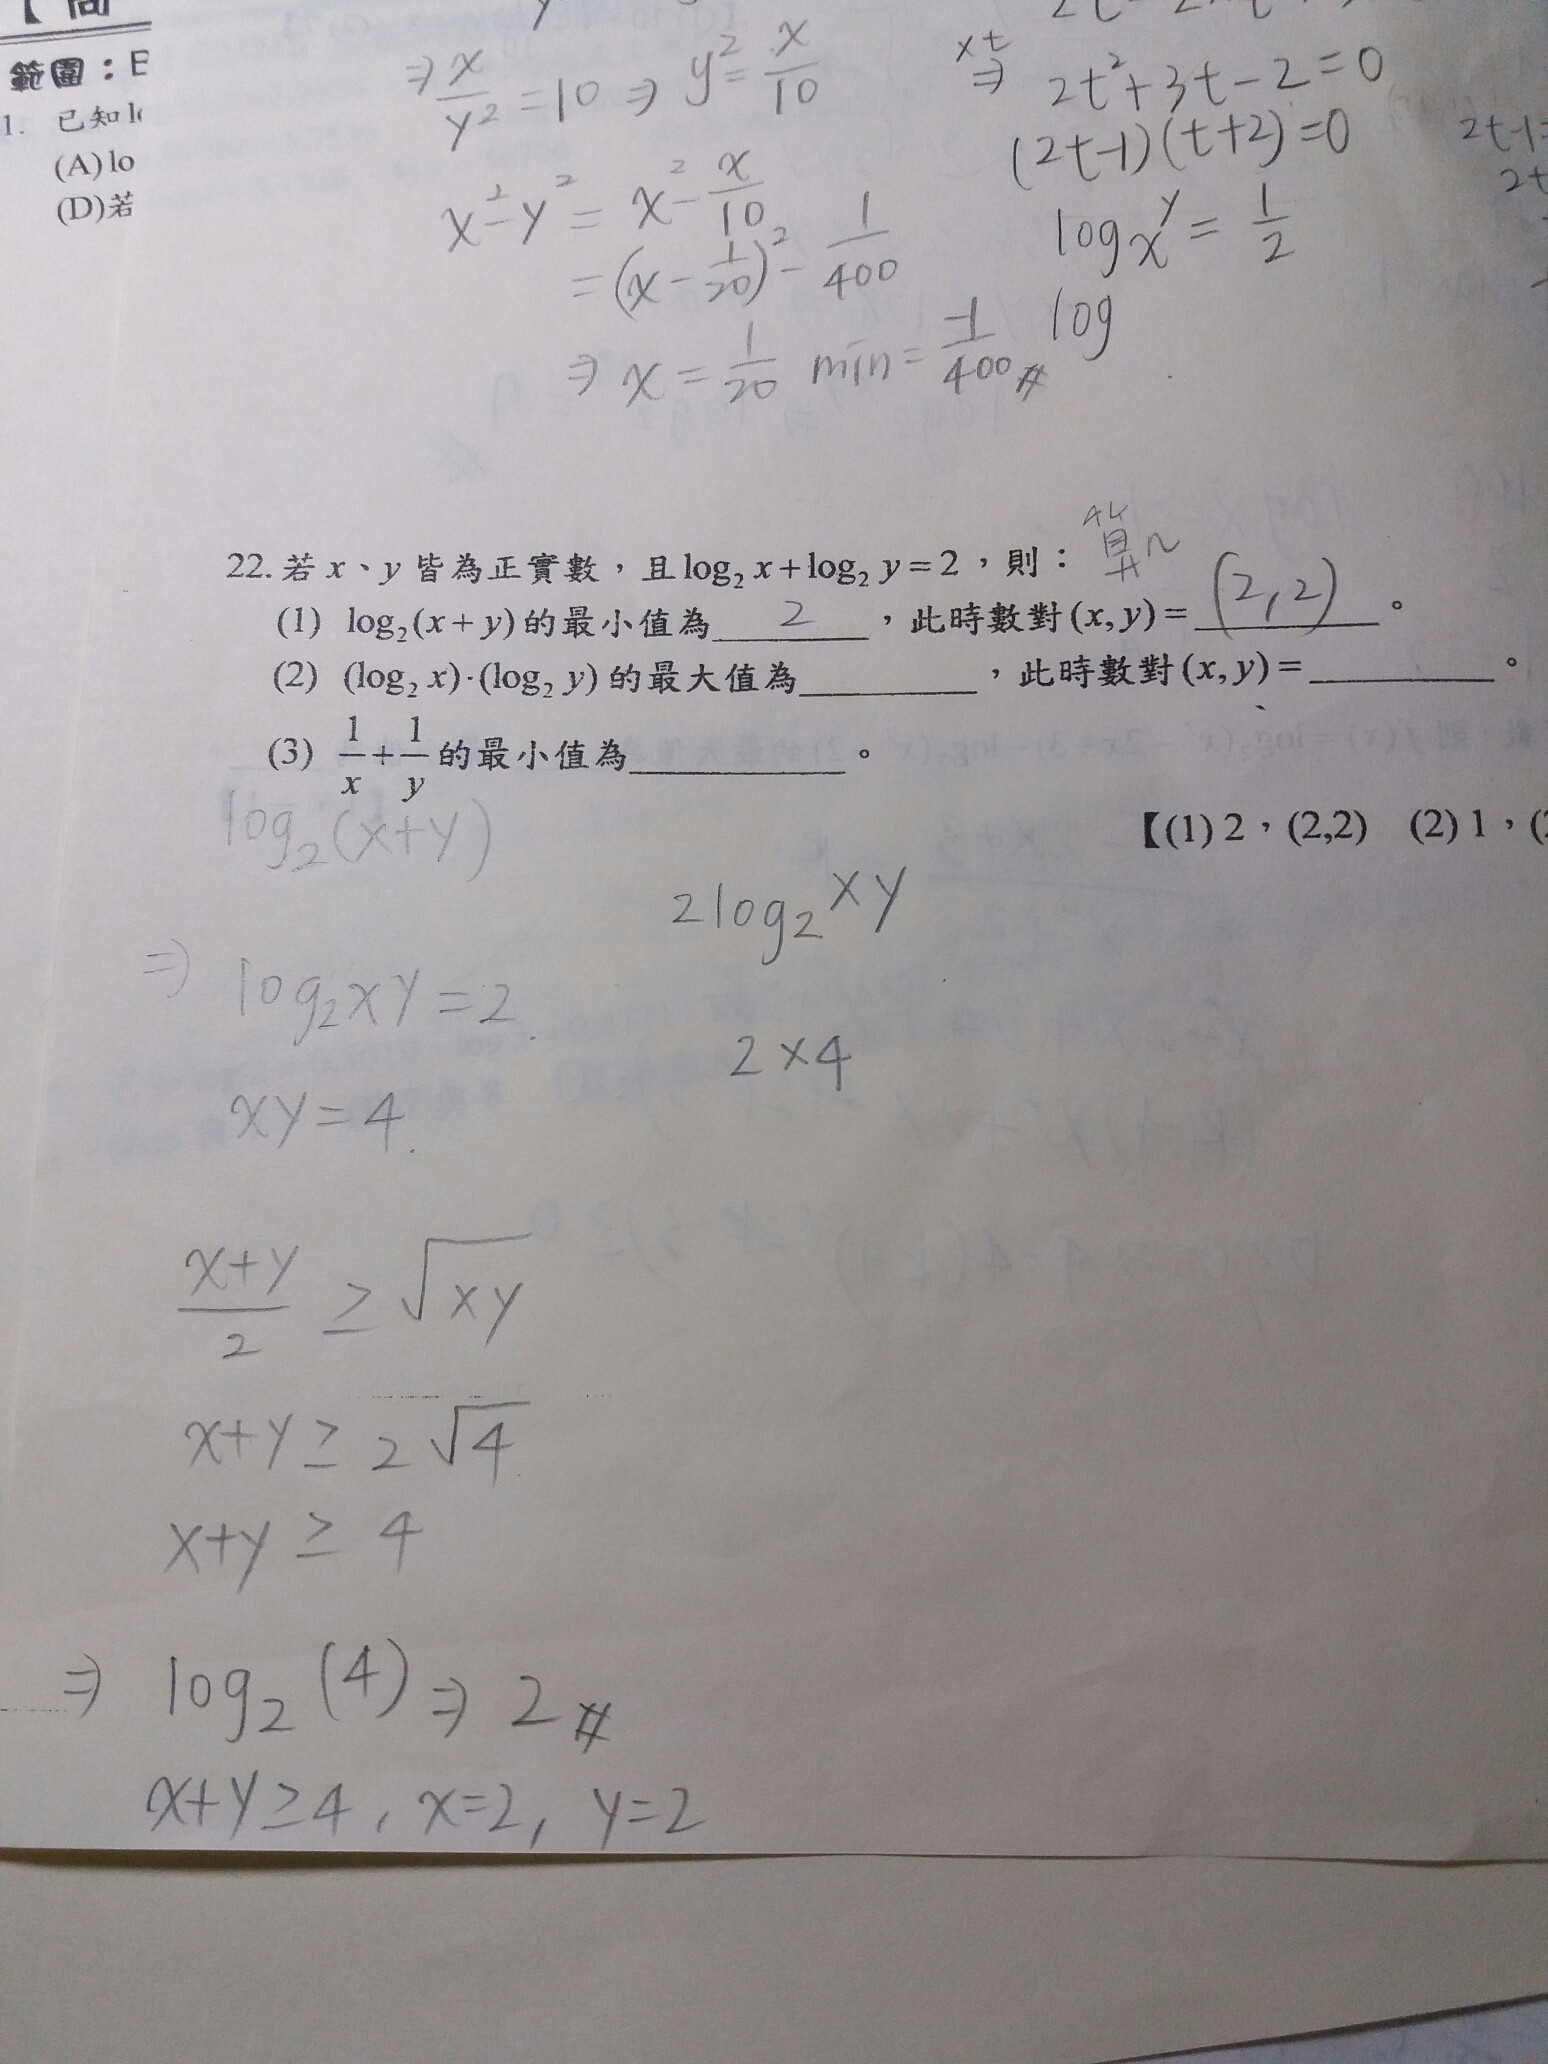 範圍：
1. 已知
(A) lo
(D) 若
⇒ x/y² = 10 ⇒ y² = x/10
x² - y² = x² - x/10
= (x - 1/20)² - 1/400
⇒ x = 1/20 min = -1/400 #
×t ⇒ 2t² + 3t - 2 = 0
(2t-1)(t+2) = 0
2t-1=
2t
log x^y = 1/2
log
22. 若 x、y 皆為正實數，且 log₂ x + log₂ y = 2，則： 算
(1) log₂(x + y) 的最小值為 2 ，此時數對 (x, y) = (2,2) 。
(2) (log₂ x)·(log₂ y) 的最大值為________，此時數對 (x, y) = ________。
(3) 1/x + 1/y 的最小值為________。
【(1) 2，(2,2) (2) 1，(
log₂(x+y)
2log₂ xy
⇒ log₂xy = 2
2×4
xy = 4
(x+y)/2 ≥ √xy
x+y ≥ 2√4
x+y ≥ 4
⇒ log₂ (4) ⇒ 2 #
x+y≥4, x=2, y=2